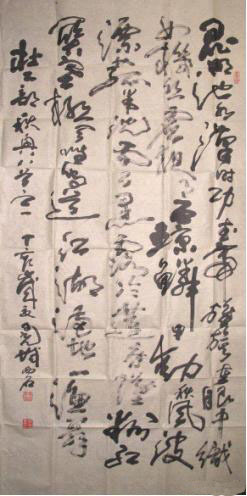 昆明池水漢時功武帝旌旗在眼中織
女機絲虛夜月石鯨鱗甲動秋風波
漂菰米沈雲黑露冷蓮房墜粉紅
關塞極天唯鳥道江湖滿地一漁翁
杜工部秋興八首之一 丁亥